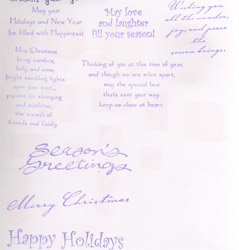 May your
Holidays and New Year
be filled with Happiness!
May love
and laughter
fill your season!
Wishing you
all the
joy and peace
the
season brings.
Miss Christmas
bring
holly and
bright twinkling lights
upon your tree...
presents for
and mistletoe,
the warmth of
friends and family.
Thinking of you at this time of year,
and though we are miles apart,
may the special love
that's sent your way
keep us close at heart.
Season's
Greetings
Merry Christmas
Happy Holidays